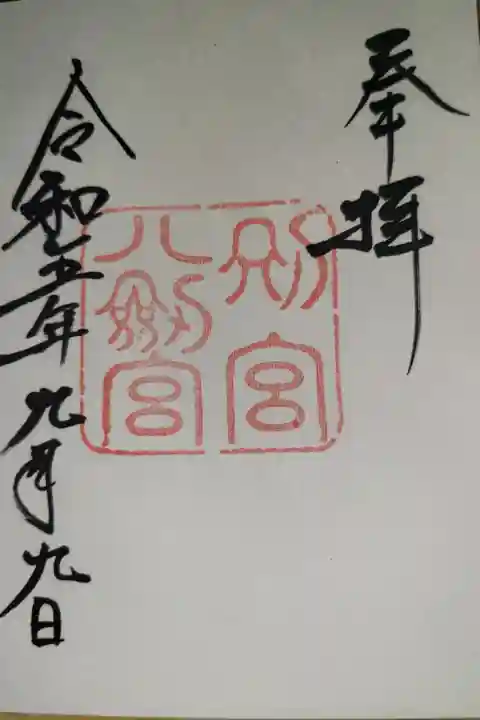 奉拝
別宮
八劔宮
令和五年九月九日